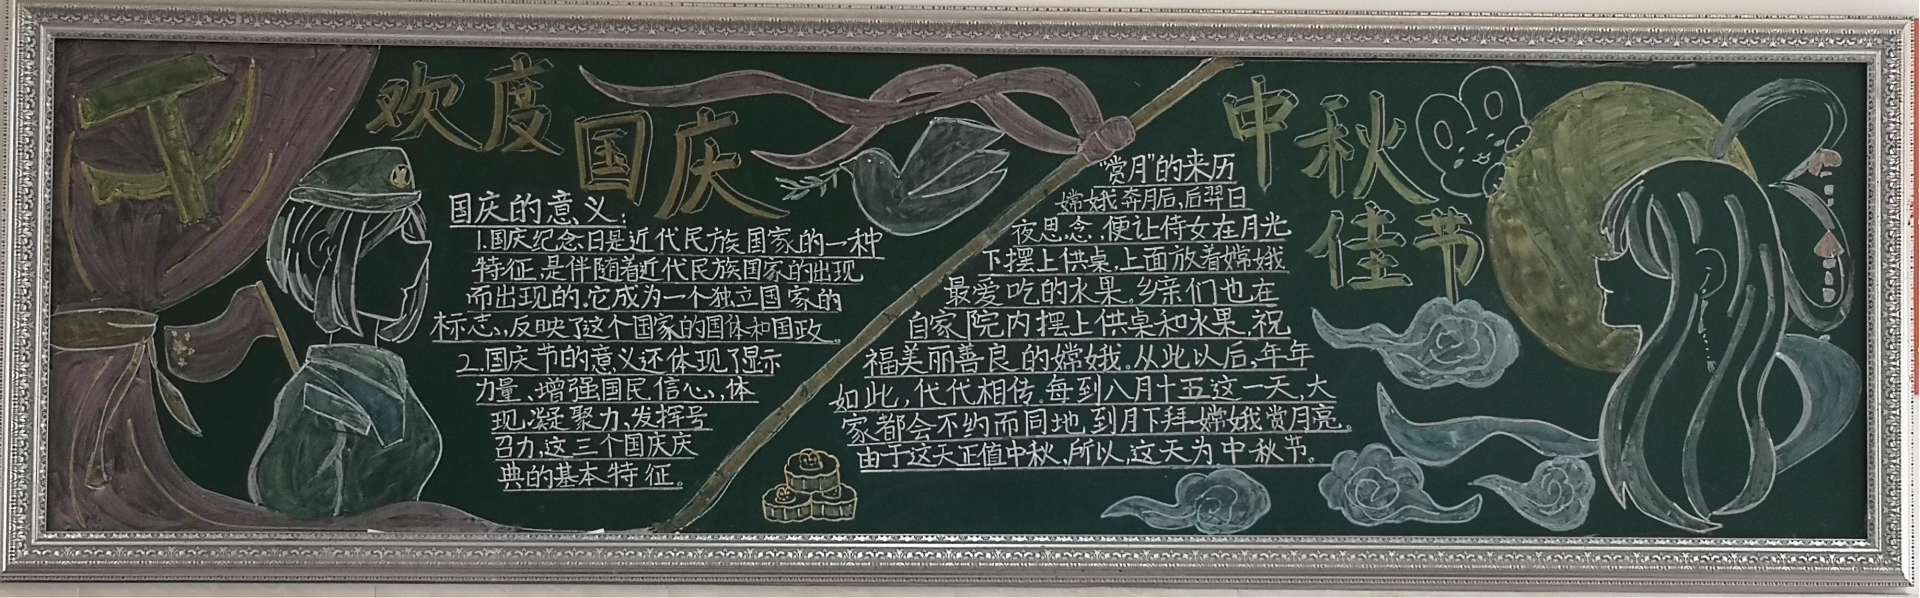 欢度
国庆
国庆的意义:
1.国庆纪念日是近代民族国家的一种
特征,是伴随着近代民族国家的出现
而出现的.它成为一个独立国家的
标志,反映了这个国家的国体和国政。
2.国庆节的意义还体现了显示
力量、增强国民信心,体
现凝聚力,发挥号
召力,这三个国庆庆
典的基本特征。
中秋
佳节
"赏月"的来历
嫦娥奔月后,后羿日
夜思念.便让侍女在月光
下摆上供桌,上面放着嫦娥
最爱吃的水果。乡亲们也在
自家院内摆上供桌和水果,祝
福美丽善良的嫦娥。从此以后,年年
如此,代代相传。每到八月十五这一天,大
家都会不约而同地到月下拜嫦娥赏月亮。
由于这天正值中秋,所以,这天为中秋节。